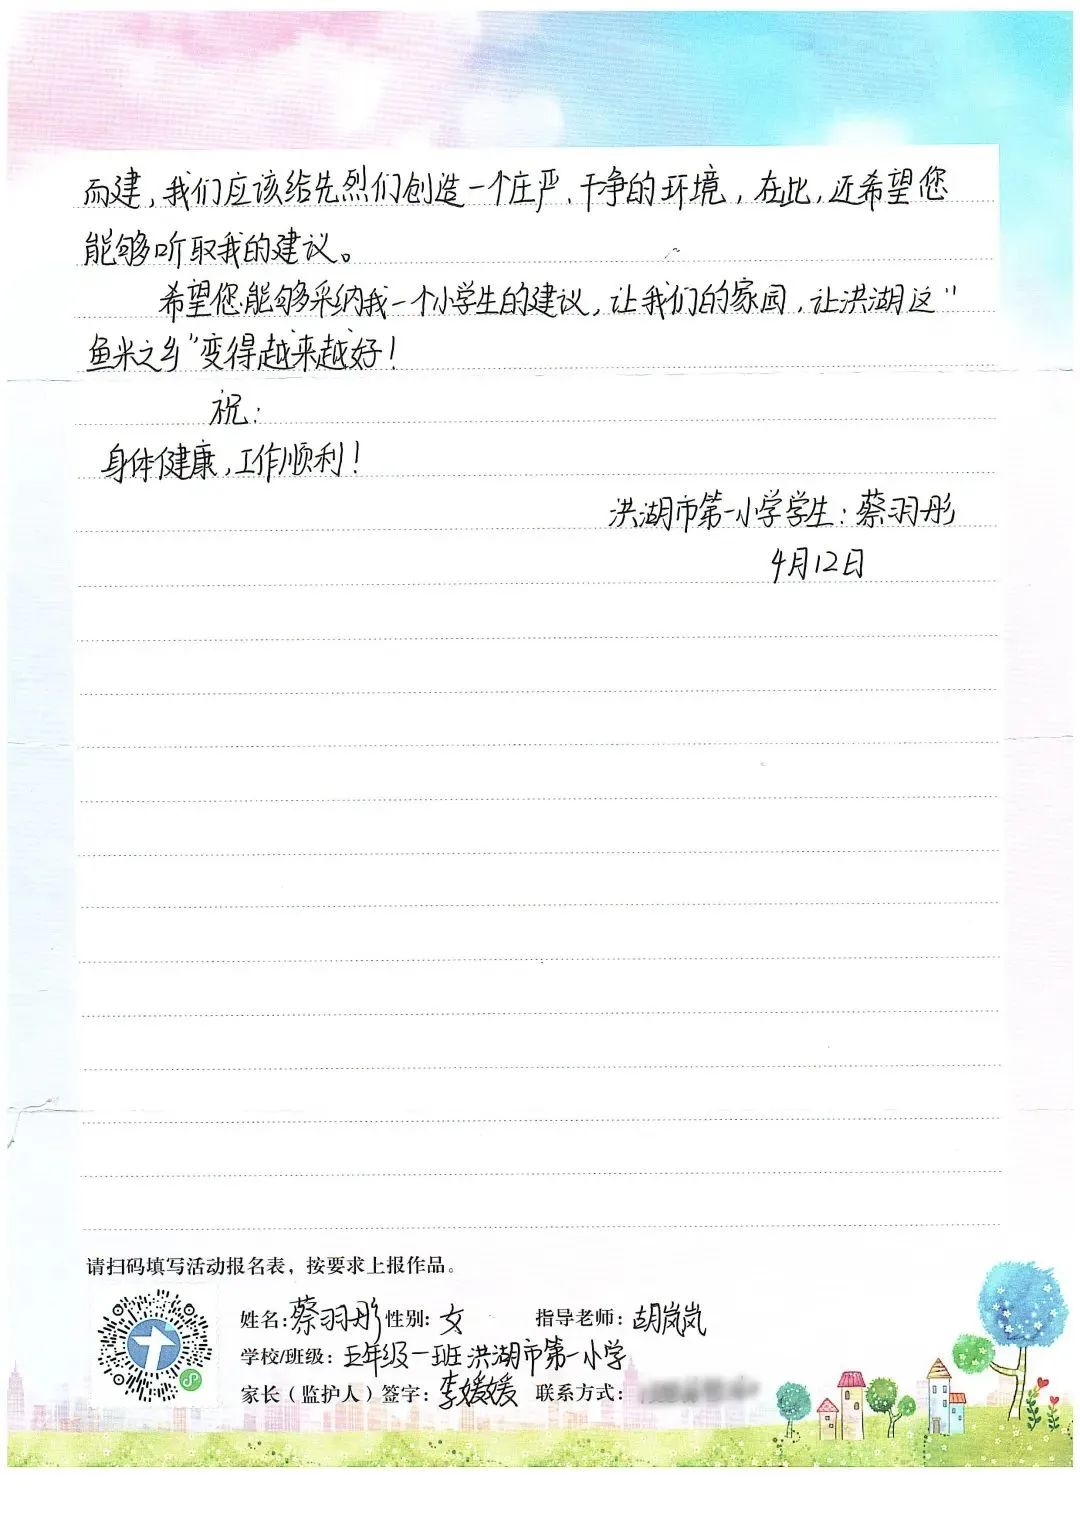 而建，我们应该给先烈们创造一个庄严、干净的环境，在此，还希望您
能够听取我的建议。
希望您能够采纳我一个小学生的建议，让我们的家园，让洪湖这“
鱼米之乡”变得越来越好！
祝：
身体健康，工作顺利！
洪湖市第一小学学生：蔡羽彤
4月12日
请扫码填写活动报名表，按要求上报作品。
姓名：蔡羽彤 性别：女 指导老师：胡岚岚
学校/班级：五年级一班 洪湖市第一小学
家长（监护人）签字：李媛媛 联系方式：